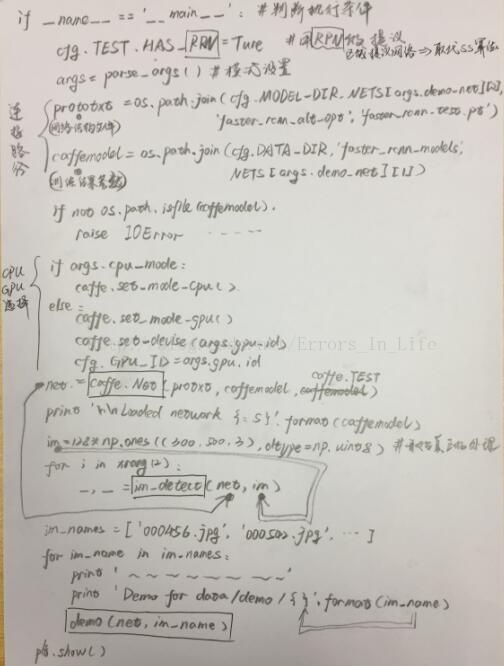 if __name__ == '__main__': #判断执行条件
cfg.TEST.HAS_RPN = Ture #用RPN的提议
区域提议网络⇒取代SS算法
args = parse_args() #模式设置
连接路径
prototxt = os.path.join(cfg.MODEL-DIR, NETS[args.demo-net][0],
(网络结构文件) 'faster_rcnn_alt-opt', 'faster_rcnn-test.pt')
caffemodel = os.path.join(cfg.DATA-DIR, 'faster_rcnn_models',
(训练结果参数) NETS[args.demo_net][1])
if not os.path.isfile(caffemodel).
raise IOError -----
CPU
GPU
选择
if args.cpu_mode:
caffe.set-mode-cpu()
else:
caffe.set_mode-gpu()
caffe.set-devise(args.gpu-id)
cfg.GPU_ID = args.gpu.id
/Errors_In_Life
caffe.TEST
net = caffe.Net(protxt, caffemodel, caffemodel)
print '\n\nLoaded network {:s}'.format(caffemodel)
im = 128* np.ones((300, 500, 3), dtype=np.uint8) #
for i in xrang(2):
_, _ = im_detect(net, im)
im_names = ['000456.jpg', '000502.jpg', ...]
for im_name in im_names:
print '~ ~ ~ ~ ~ ~ ~'
print 'Demo for data/demo/{}'.format(im_name)
demo(net, im_name)
plt.show()